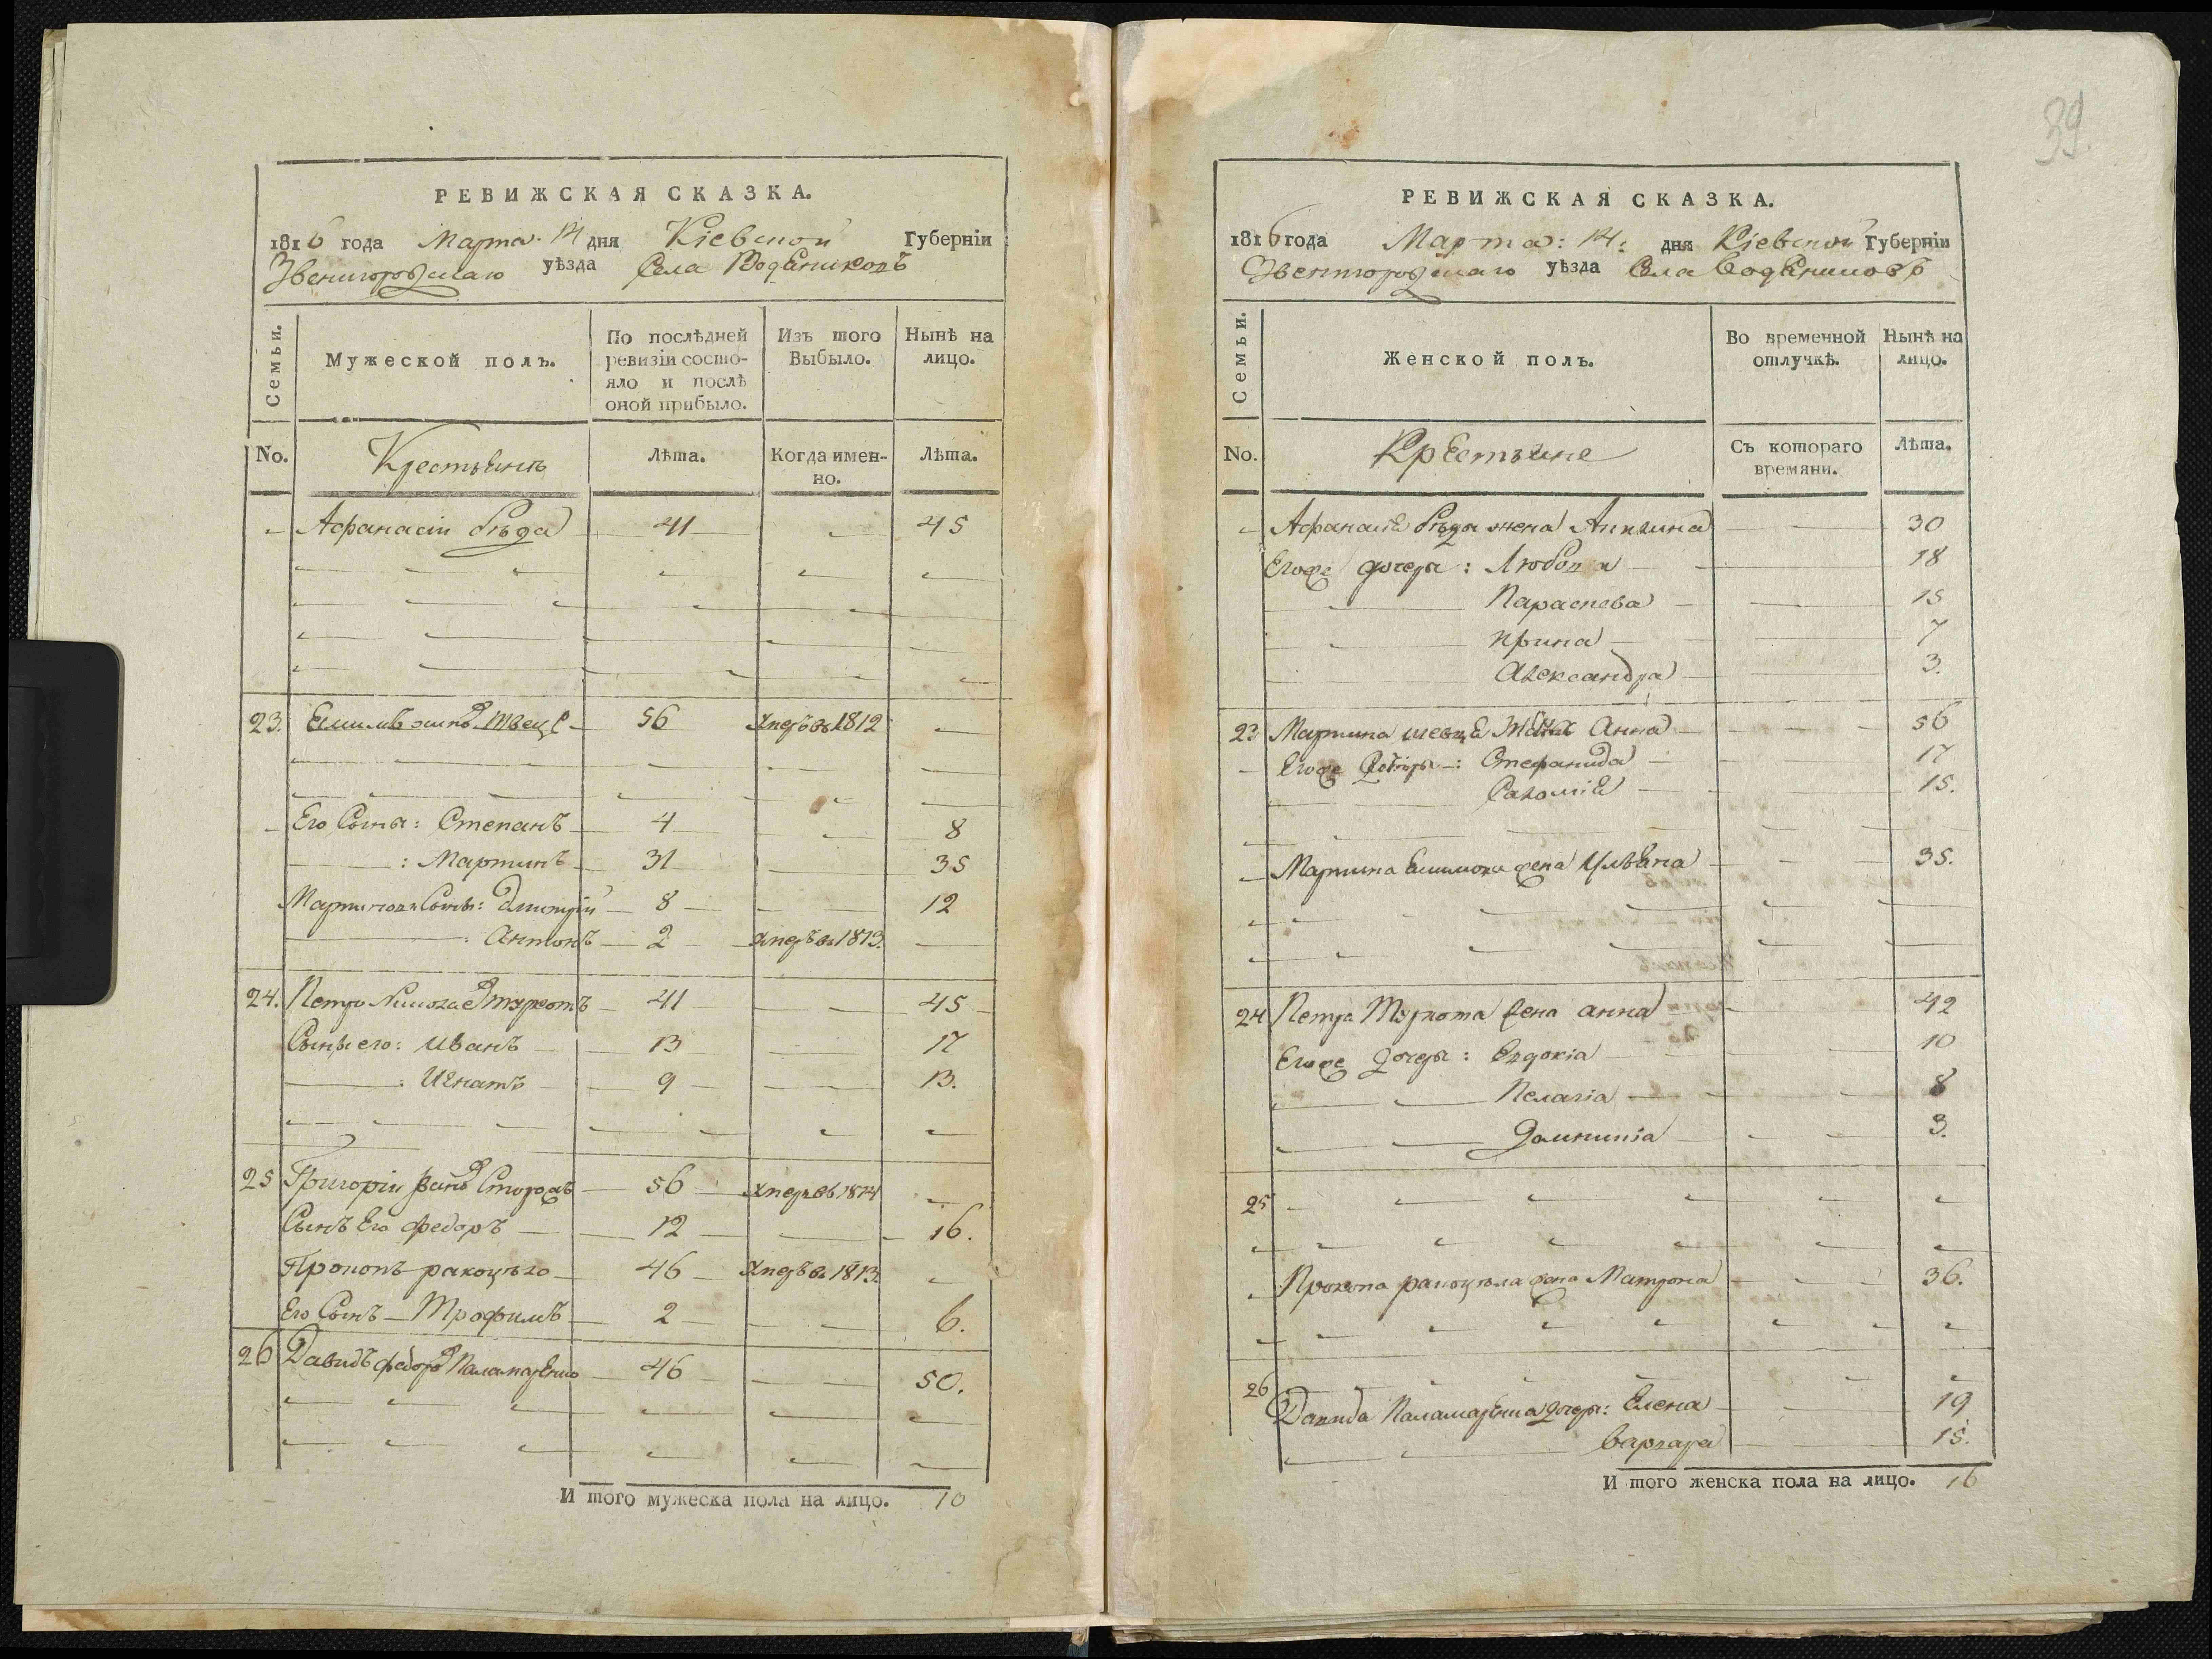 РЕВИЖСКАЯ СКАЗКА.
1816 года Марта 14 дня Кіевской Губерніи
Звенигородскаго уѣзда Села Водяниковъ
Семьи.
Мужеской полъ.
По послѣдней ревизіи состо-
яло и послѣ
оной прибыло.
Изъ того
Выбыло.
Нынѣ на
лицо.
No.
Крестьяне
Лѣта.
Когда имен-
но.
Лѣта.
Афанасіи бѣда 41 45
23. 56 1812
Его Сыны: Степанъ 4 8
: Мартинъ 31 35
Мартиновы Сыны: Дмитрій 8 12
: Антонъ 2 1813.
24. Петро 41 45
Сыны его: Иванъ 13 17
: Игнатъ 9 13.
25 Григоріи 56 1814
Сынъ Его Федоръ 12 16.
Прокопъ 46 1813.
Его Сынъ Трофимъ 2 6.
26 Давидъ 46 50.
И того мужеска пола на лицо. 10
39.
РЕВИЖСКАЯ СКАЗКА.
1816 года Марта: 14: дня Кіевской Губерніи
Звенигородскаго уѣзда Села Водяниковъ
Семьи.
Женской полъ.
Во временной
отлучкѣ.
Нынѣ на
лицо.
No.
Крестьяне
Съ котораго
времяни.
Лѣта.
Афанасія бѣды жена 30
Егоже дочери: 18
Параскева 15
Ирина 7
Александра 3.
23 Мартина шевця Анна 56
Егоже Стефанида 17
Саломія 15.
Мартина жена Ульяна 35.
24 Петра жена Анна 42
Егоже дочеры: Евдокія 10
Пелагія 8
Домникія 3.
25
Прокопа жена Матрона 36.
26
Давида дочеры: Елена 19
Варвара 15.
И того женска пола на лицо. 16